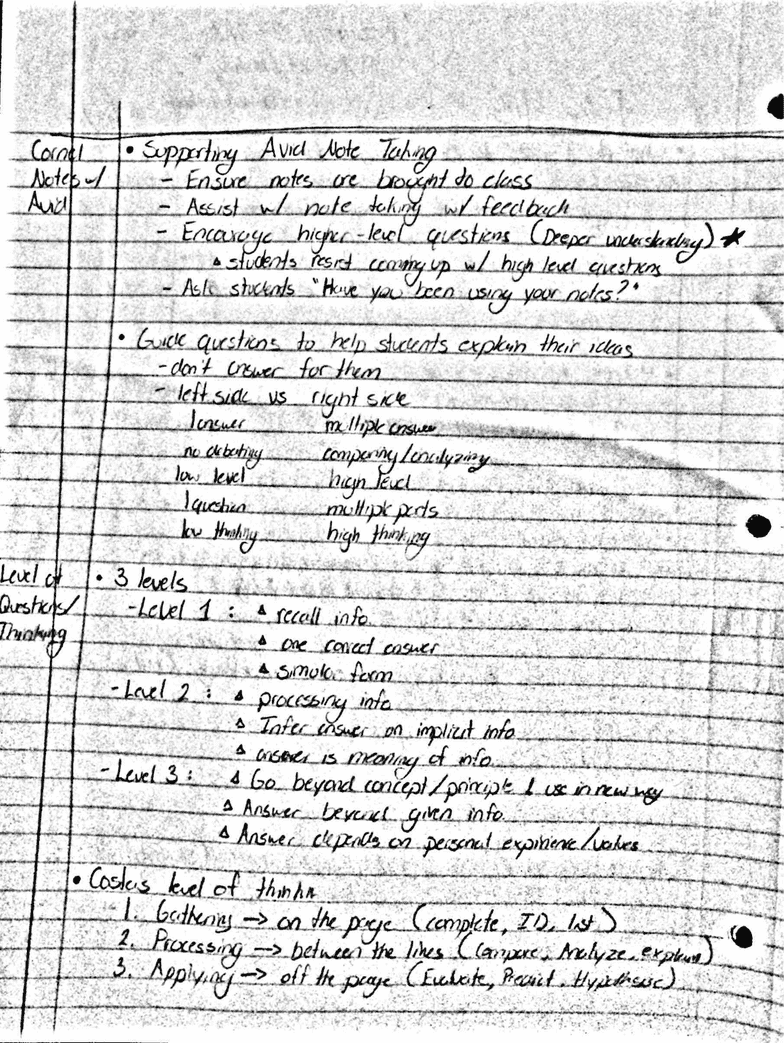 Cornel • Supporting Avid Note Taking
Notes w/ - Ensure notes are brought to class
Avid - Assist w/ note taking w/ feedback
- Encourage higher-level questions (Deeper understanding) ★
▵ students resist coming up w/ high level questions
- Ask students "Have you been using your notes?"
• Guide questions to help students explain their ideas
- don't answer for them
- left side vs right side
1 answer multiple answer
no debating comparing/analyzing
low level high level
1 question multiple parts
low thinking high thinking
Level of • 3 levels
Questions/ - Level 1 : ▵ recall info.
Thinking ▵ one correct answer
▵ form
- Level 2 : ▵ processing info
▵ Infer answer on implicit info.
▵ answer is meaning of info.
- Level 3 : ▵ Go beyond concept/principle & use in new way
▵ Answer beyond given info.
▵ Answer depends on personal expirience/values
• Costas level of
1. Gathering → on the page (complete, ID, list)
2. Processing → between the lines (Compare, Analyze, explain)
3. Applying → off the page (Evaluate, Predict, Hypothesize)